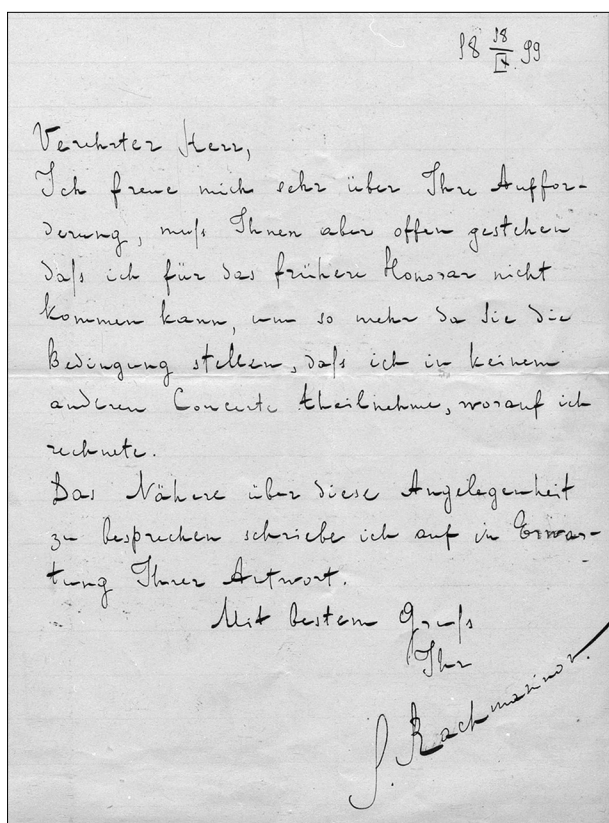 18 18/IX 99
Verehrter Herr,
Ich freue mich sehr über Ihre Auffor-
derung, muß Ihnen aber offen gestehen
daß ich für das frühere Honorar nicht
kommen kann, um so mehr da Sie die
Bedingung stellen, daß ich in keinem
anderen Concerte theilnehme, worauf ich
rechnete.
Das Nähere über diese Angelegenheit
zu besprechen schriebe ich auf in Erwar-
tung Ihrer Antwort.
Mit bestem Gruß
Ihr
S. Rachmaninov.